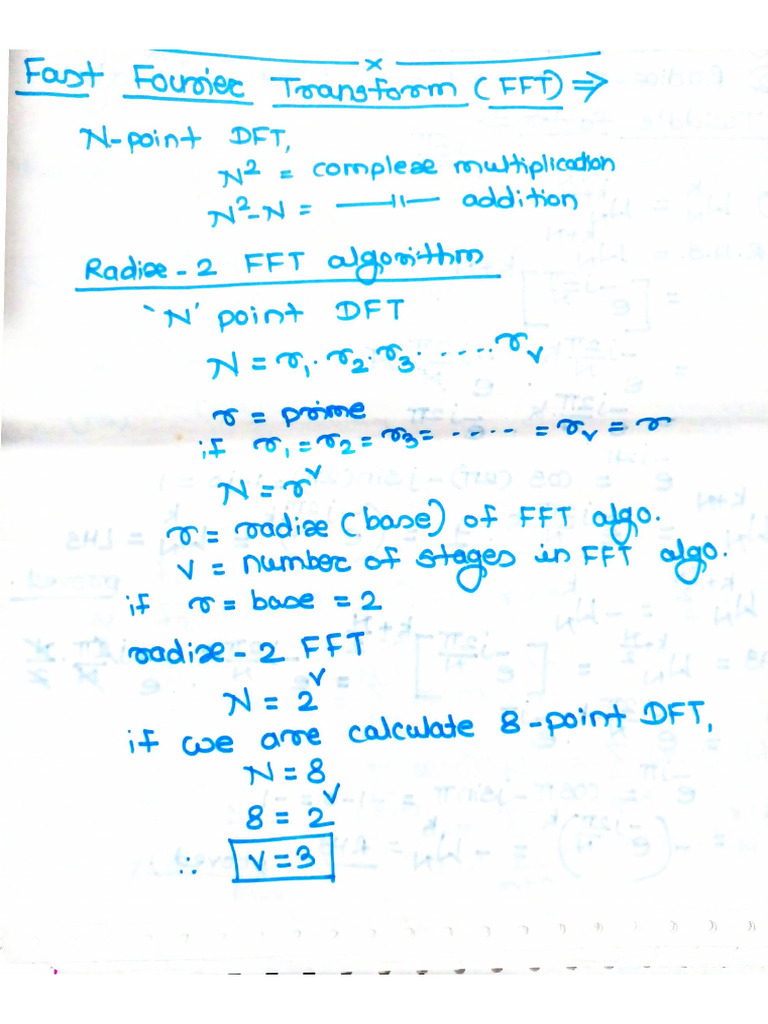 x
Fast Fourier Transform (FFT) ⇒
N-point DFT,
N² = complex multiplication
N²-N = —||— addition
Radix-2 FFT algorithm
'N' point DFT
N = r₁. r₂. r₃. ..... rᵥ
r = prime
if r₁ = r₂ = r₃ = ..... = rᵥ = r
N = r^v
r = radix (base) of FFT algo.
v = number of stages in FFT algo.
if r = base = 2
radix-2 FFT
N = 2^v
if we are calculate 8-point DFT,
N = 8
8 = 2^v
∴ v = 3